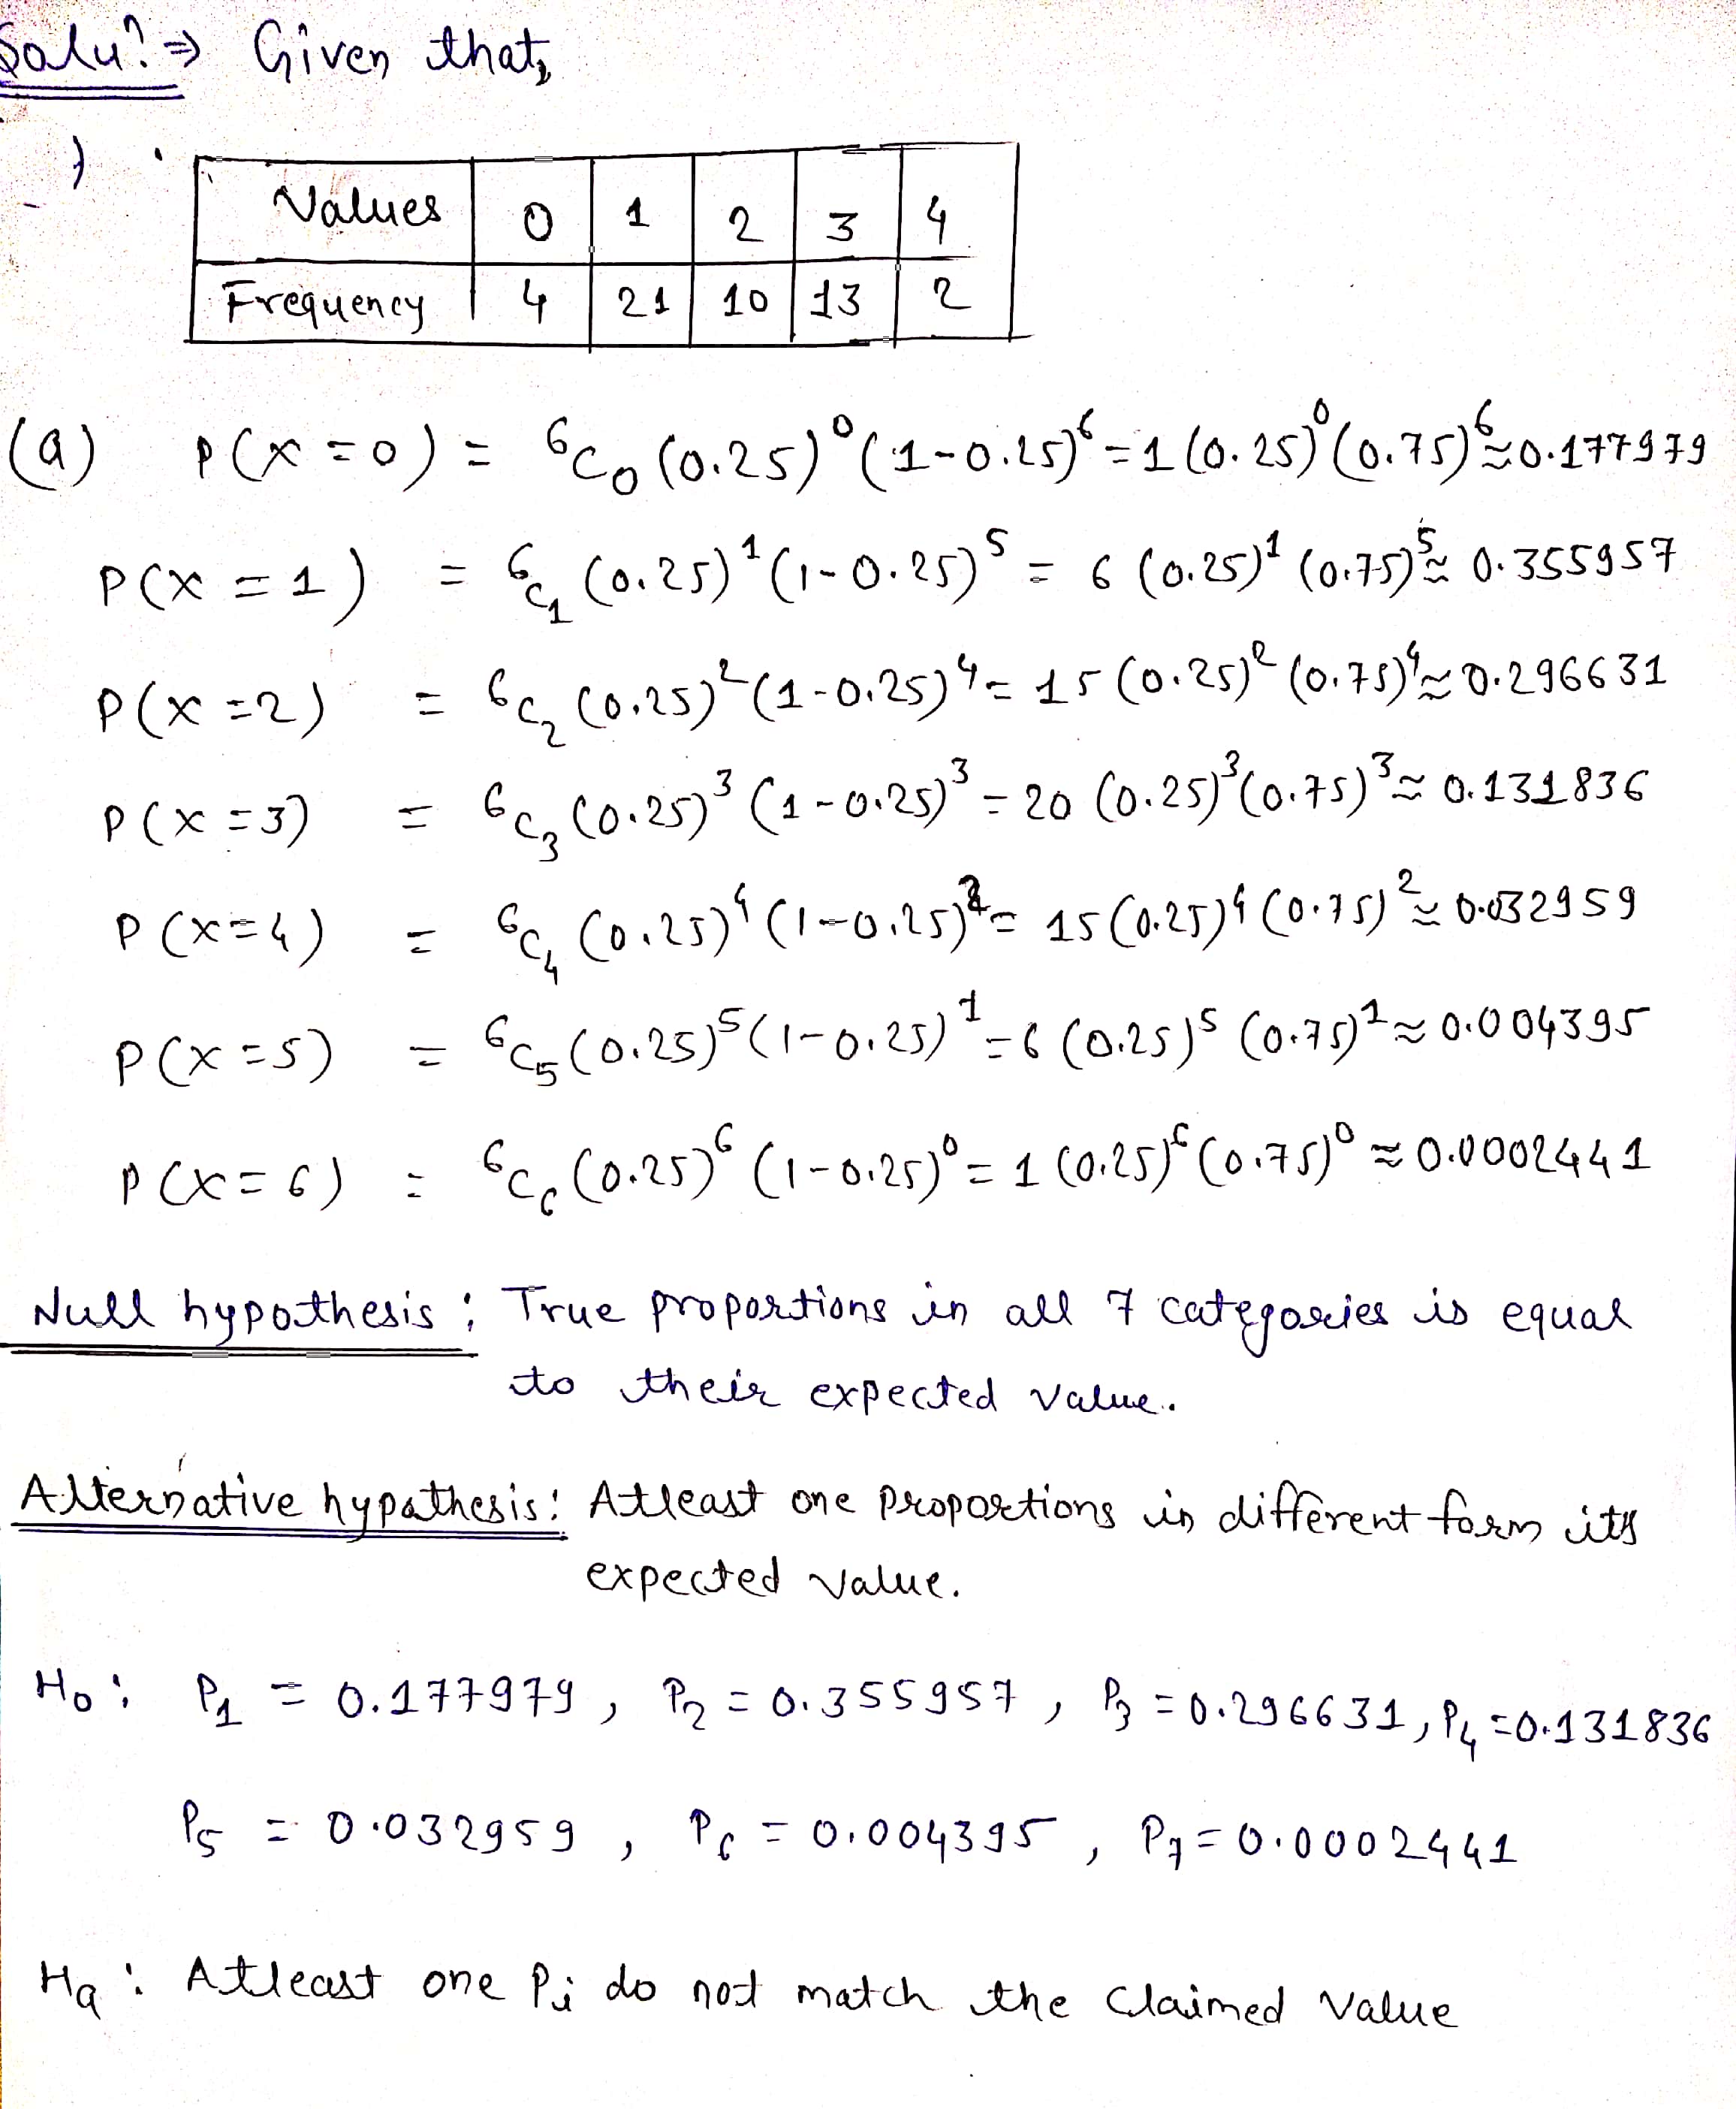 Solun ⇒ Given that,
Values 0 1 2 3 4
Frequency 4 21 10 13 2
(a) P(X=0) = ⁶C₀ (0.25)⁰ (1-0.25)⁶ = 1 (0.25)⁰ (0.75)⁶ ≈ 0.177979
P(X=1) = ⁶C₁ (0.25)¹ (1-0.25)⁵ = 6 (0.25)¹ (0.75)⁵ ≈ 0.355957
P(X=2) = ⁶C₂ (0.25)² (1-0.25)⁴ = 15 (0.25)² (0.75)⁴ ≈ 0.296631
P(X=3) = ⁶C₃ (0.25)³ (1-0.25)³ = 20 (0.25)³ (0.75)³ ≈ 0.131836
P(X=4) = ⁶C₄ (0.25)⁴ (1-0.25)² = 15 (0.25)⁴ (0.75)² ≈ 0.032959
P(X=5) = ⁶C₅ (0.25)⁵ (1-0.25)¹ = 6 (0.25)⁵ (0.75)¹ ≈ 0.004395
P(X=6) = ⁶C₆ (0.25)⁶ (1-0.25)⁰ = 1 (0.25)⁶ (0.75)⁰ ≈ 0.0002441
Null hypothesis : True proportions in all 7 categories is equal
to their expected value.
Alternative hypothesis : Atleast one proportions in different form its
expected value.
H₀ : P₁ = 0.177979 , P₂ = 0.355957 , P₃ = 0.296631 , P₄ = 0.131836
P₅ = 0.032959 , P₆ = 0.004395 , P₇ = 0.0002441
Ha : Atleast one Pi do not match the Claimed Value